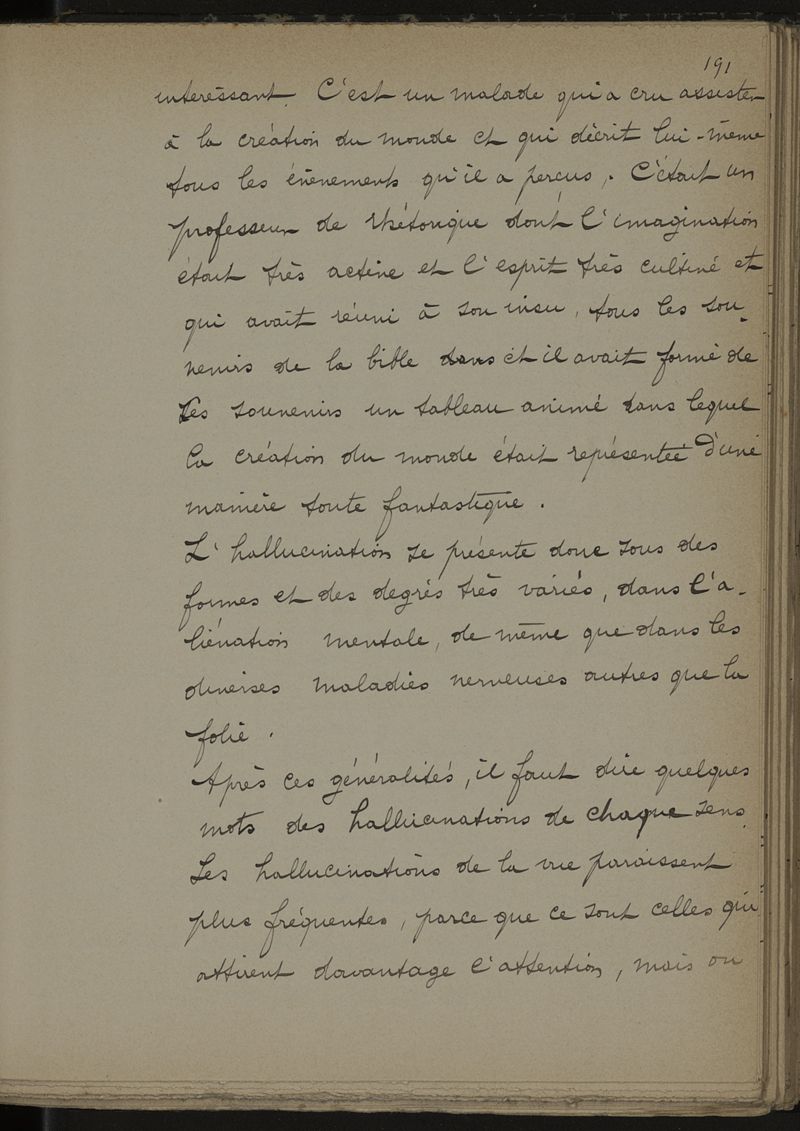 191
intéressant. C'est un malade qui a cru assister
à la création du monde et qui décrit lui-même
tous les évènements qu'il a perçus. C'était un
professeur de rhétorique dont l'imagination
était très active et l'esprit très cultivé et
qui avait réuni à son insu, tous les sou-
venirs de la bible dans et il avait formé de
ses souvenirs un tableau animé dans lequel
la création du monde était représentée d'une
manière toute fantastique.
L'hallucination se présente donc sous des
formes et des degrés très variés, dans l'a-
liénation mentale, de même que dans les
diverses maladies nerveuses autres que la
folie.
Après ces généralités, il faut dire quelques
mots des hallucinations de chaque sens.
Les hallucinations de la vue paraissent
plus fréquentes, parce que ce sont celles qui
attirent davantage l'attention, mais on